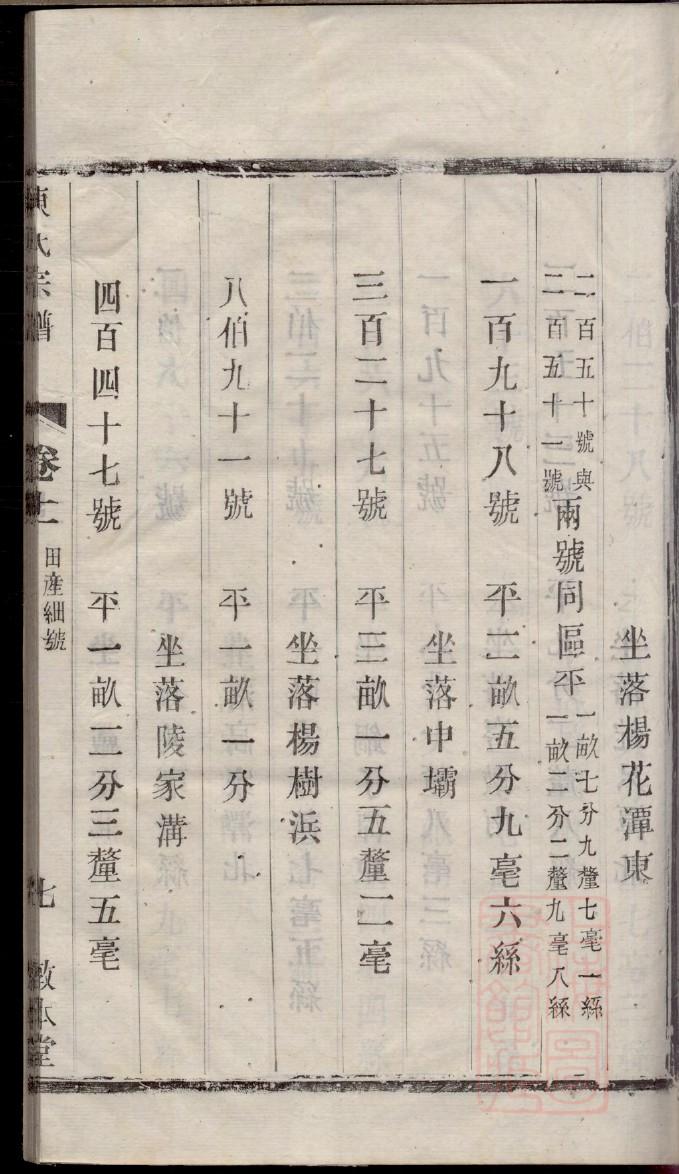 坐落楊花潭東
二百五十號與
二百五十一號
兩號同區平
一畝七分九釐七毫一絲
一畝二分二釐九毫八絲
一百九十八號　平二畝五分九毫六絲
坐落中壩
三百二十七號　平三畝一分五釐二毫
坐落楊樹浜
八伯九十一號　平一畝一分
坐落陵家溝
四百四十七號　平一畝二分三釐五毫
氏宗譜
卷十二
田產細號
七
敦本堂